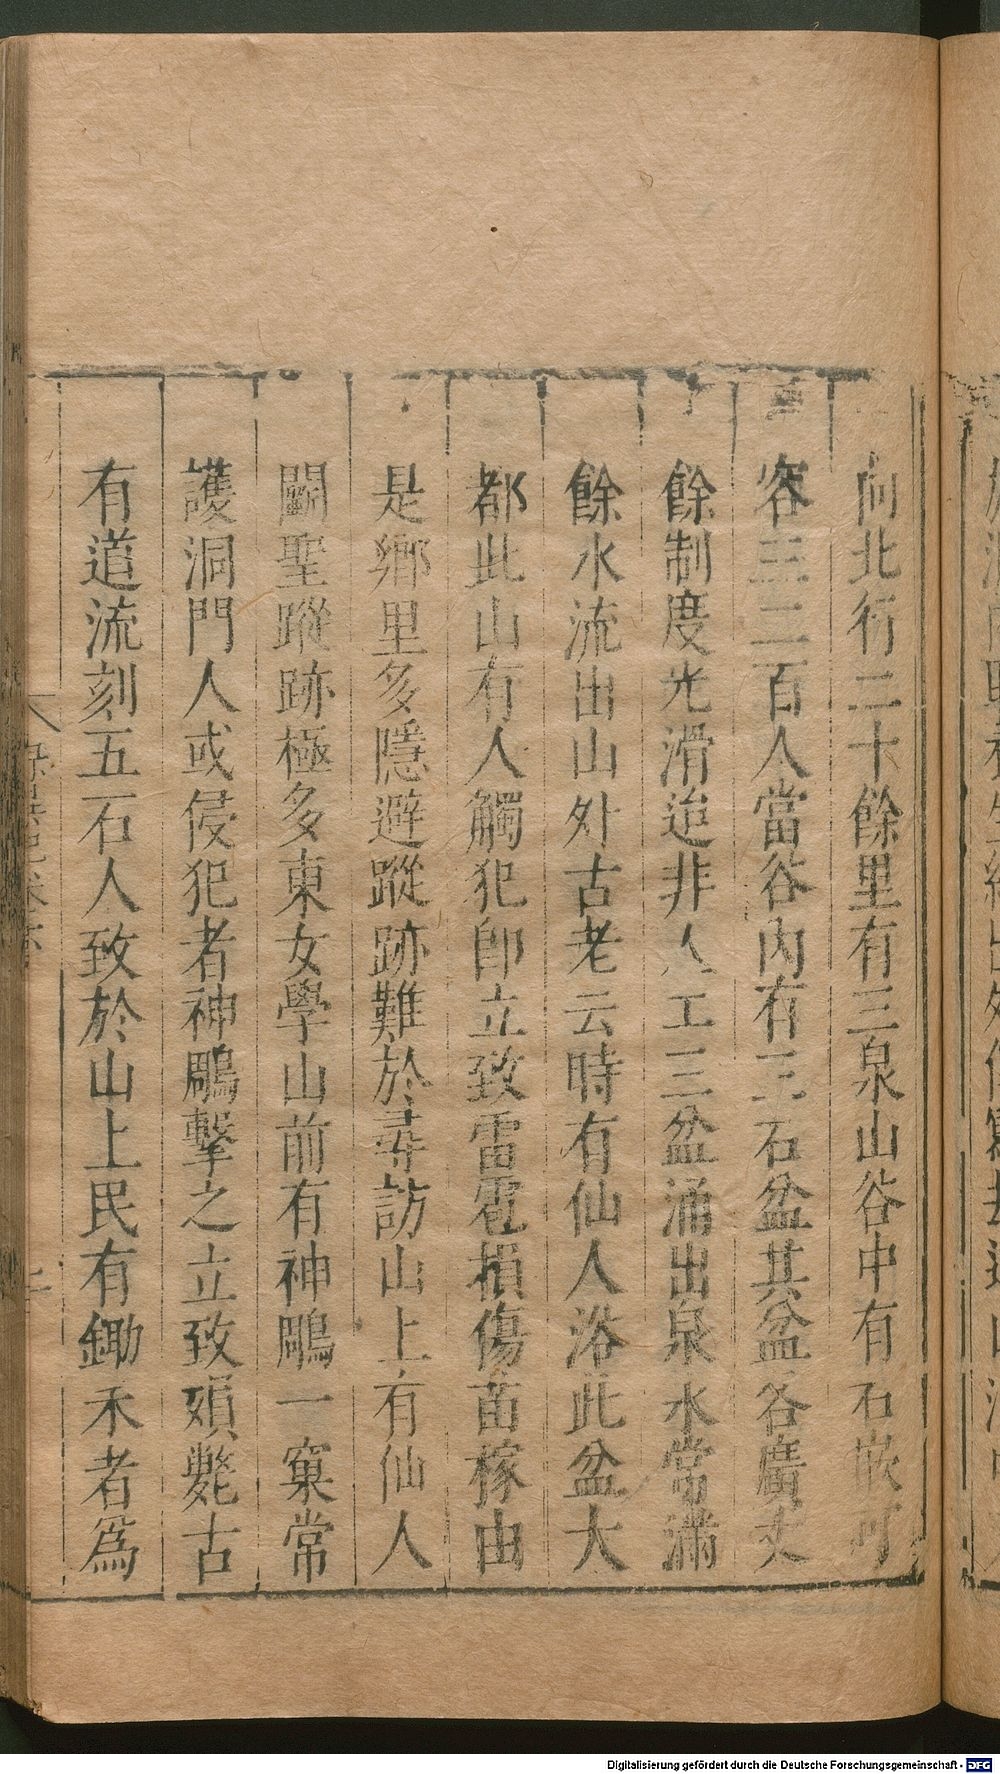 向北行二十餘里有三泉山谷中有石嵌可
容三二百人當谷內有三石盆其盆各廣丈
餘制度光滑迨非人工三盆涌出泉水常滿
餘水流出山外古老云時有仙人浴此盆大
都此山有人觸犯卽立致雷雹損傷苗稼由
是鄉里多隱避蹤跡難於尋訪山上有仙人
闕聖蹤跡極多東女學山前有神鵰一窠常
護洞門人或侵犯者神鵰擊之立致殞斃古
有道流刻五石人致於山上民有鋤禾者爲
Digitalisierung gefördert durch die Deutsche Forschungsgemeinschaft - DFG